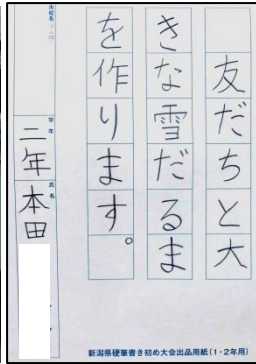 友だちと大
きな雪だるま
を作ります。
学年
二年
氏名
本田
新潟県硬筆書き初め大会出品用紙(1・2年用)